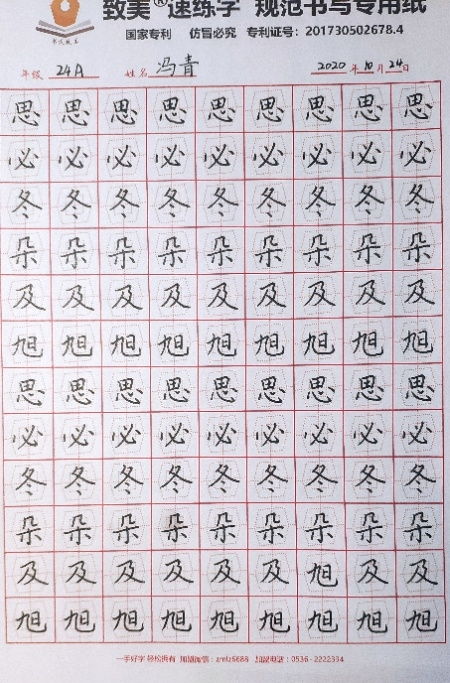 致美®速练字 规范书写专用纸
国家专利 仿冒必究 专利证号：201730502678.4
年级 24A 姓名 冯青 2020年10月24日
思思思思思思思思思
必必必必必必必必必
冬冬冬冬冬冬冬冬冬
朵朵朵朵朵朵朵朵朵
及及及及及及及及及
旭旭旭旭旭旭旭旭旭
思思思思思思思思思
必必必必必必必必必
冬冬冬冬冬冬冬冬冬
朵朵朵朵朵朵朵朵朵
及及及及及及旭及及
旭旭旭旭旭旭旭旭旭
一手好字 轻松拥有 加盟微信： 加盟电话：0536-2222334